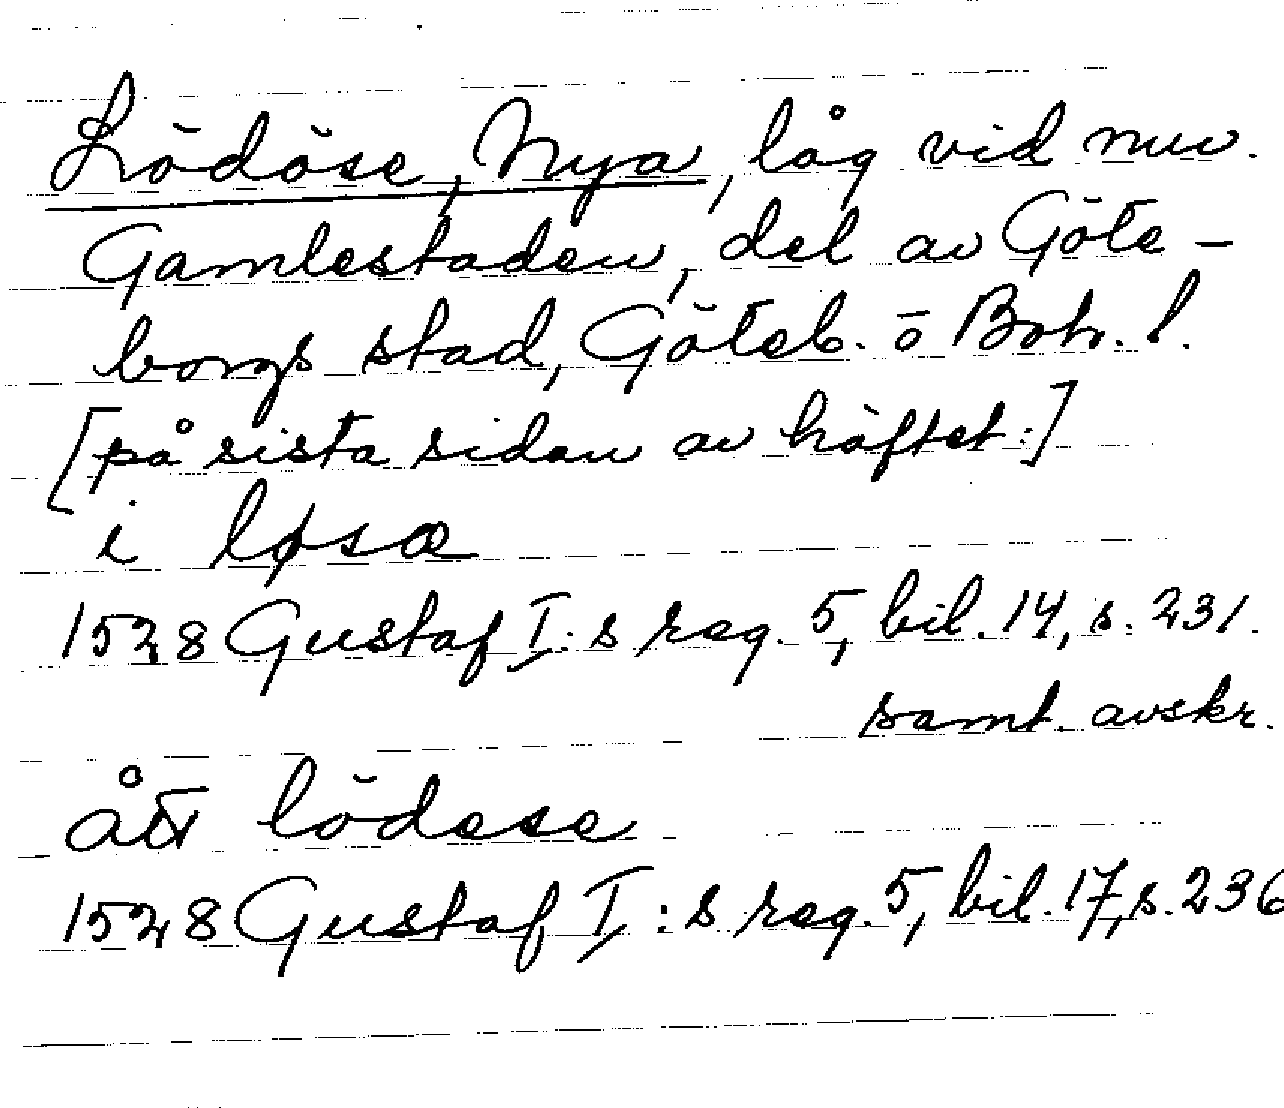 Lödöse, Nya, låg vid nuv.
Gamlestaden, del av Göte-
borgs stad, Göteb. o Boh. l.
[på sista sidan av häftet:]
i løsæ
1528 Gustaf I:s reg. 5, bil. 14, s. 231.
samt. avskr.
åt lödese
1528 Gustaf I:s reg. 5, bil. 17, s. 236